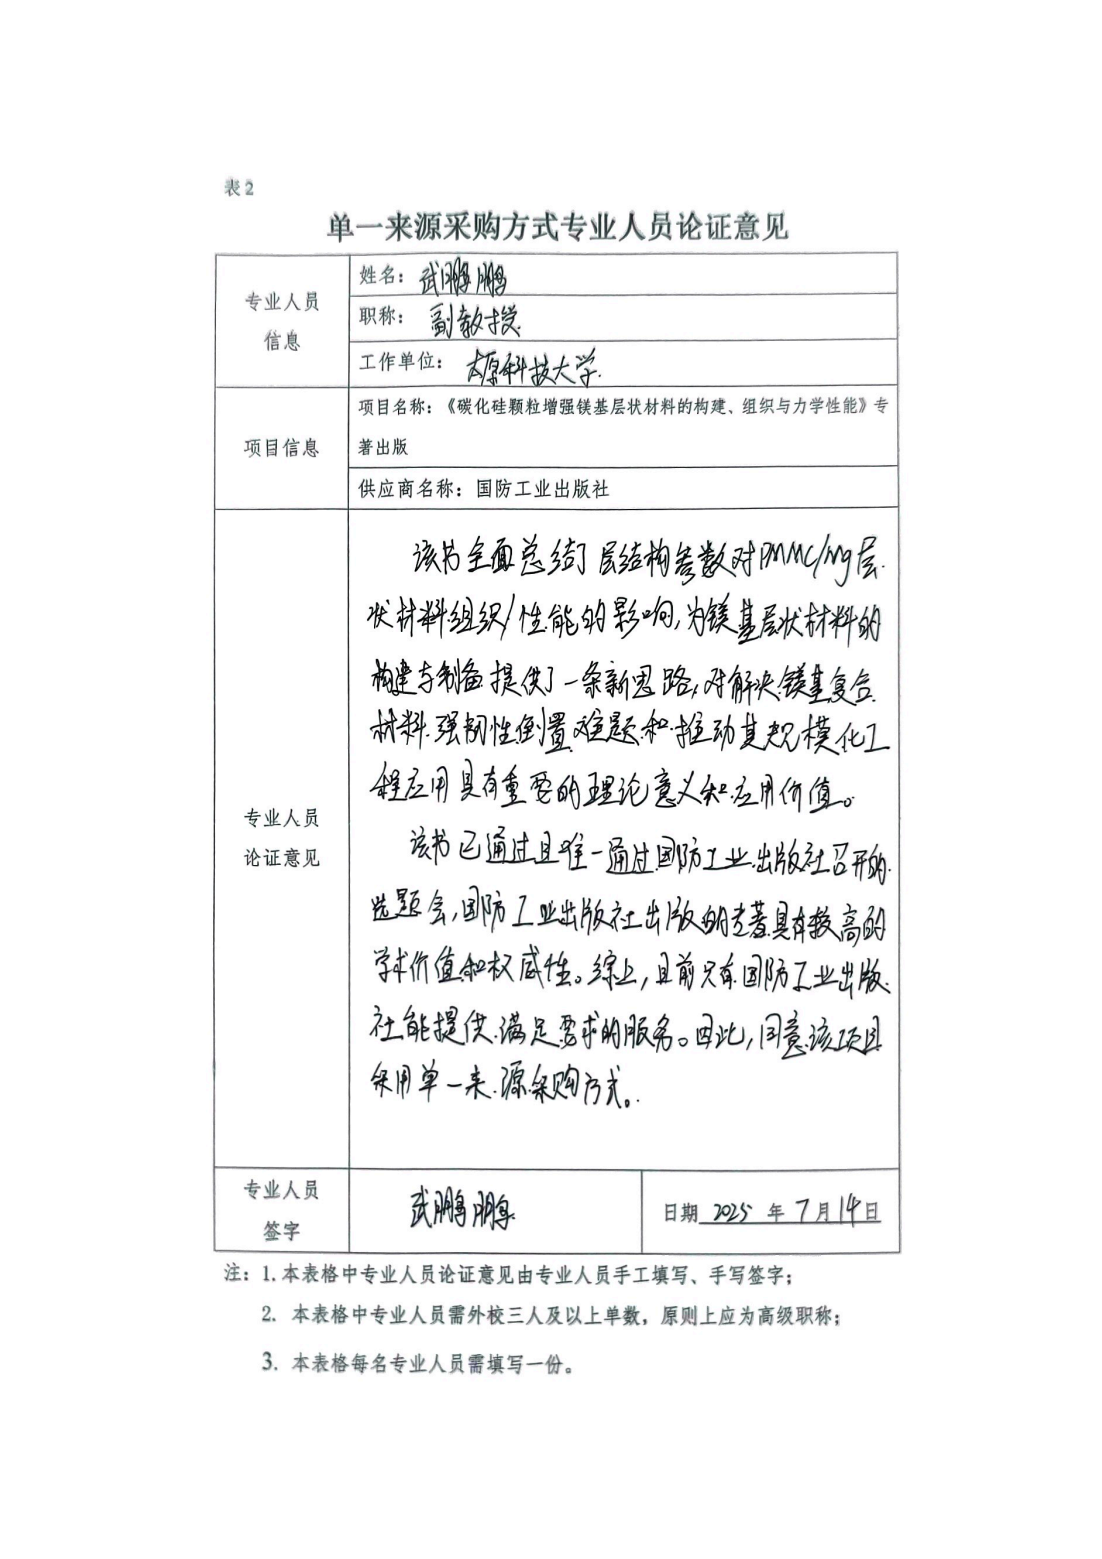 表2
单一来源采购方式专业人员论证意见
专业人员
信息
姓名：武鹏鹏
职称：副教授
工作单位：太原科技大学.
项目信息
项目名称：《碳化硅颗粒增强镁基层状材料的构建、组织与力学性能》专
著出版
供应商名称：国防工业出版社
专业人员
论证意见
该书全面总结了层结构参数对PMMC/Mg层
状材料组织/性能的影响,为镁基层状材料的
构建与制备提供了一条新思路,对解决镁基复合
材料强韧性倒置难题和推动其规模化工
程应用具有重要的理论意义和应用价值。
该书已通过且唯一通过国防工业出版社召开的
选题会,国防工业出版社出版的专著具有较高的
学术价值和权威性。综上,目前只有国防工业出版
社能提供满足需求的服务。因此,同意该项目
采用单一来源采购方式。
专业人员
签字
武鹏鹏
日期 2025 年 7月14日
注：1.本表格中专业人员论证意见由专业人员手工填写、手写签字；
2. 本表格中专业人员需外校三人及以上单数，原则上应为高级职称；
3. 本表格每名专业人员需填写一份。